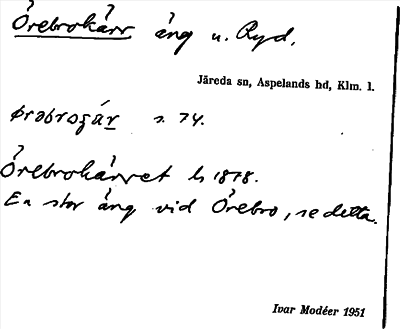 Örebrokärr äng u. Ryd.
Järeda sn, Aspelands hd, Klm. l.
s. 74.
Örebrokärret ls 1878.
En stor äng vid Örebro, se detta.
Ivar Modéer 1951